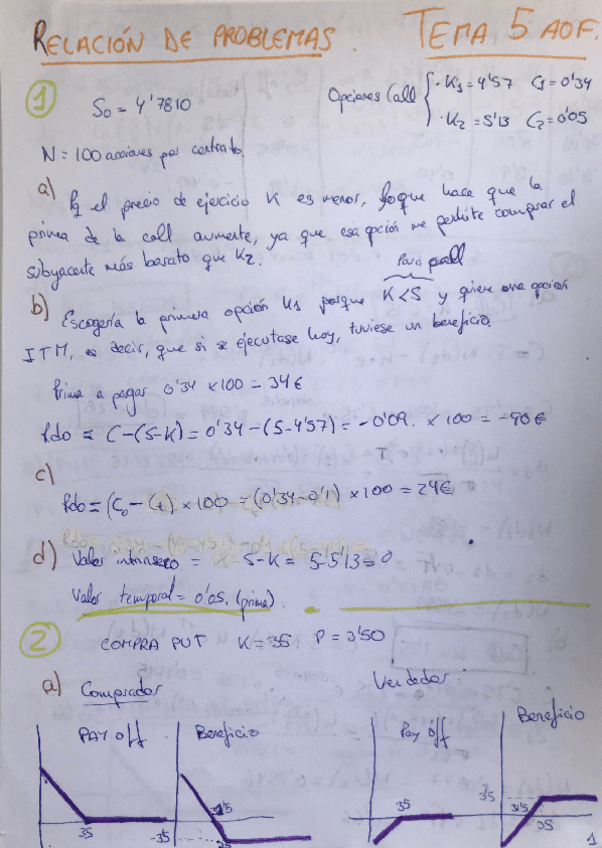 RELACIÓN DE PROBLEMAS. TEMA 5 AOF.
1
S0 = 4'7810
Opciones Call { · K1 = 4'57 C1 = 0'34
· K2 = 5'13 C2 = 0'05
N = 100 acciones por contrato.
a) el precio de ejercicio K es menor, lo que hace que la
prima de la call aumente, ya que esa opción me permite comprar el
subyacente más barato que K2.
Para call
b) Escogería la primera opción porque K<S y quiere una opción
ITM, es decir, que si se ejecutase hoy, tuviese un beneficio.
Prima a pagar 0'34 x 100 = 34€
Rdo = C-(S-K) = 0'34-(5-4'57) = -0'09. x 100 = -90€
c)
Rdo = (C0 - Ct) x 100 = (0'34-0'1) x 100 = 24€
d) Valor intrínseco = S-K = 5-5'13 = 0
Valor temporal = 0'05. (prima).
2 COMPRA PUT K=35 P = 3'50
a) Comprador Vendedor.
PAY off Beneficio Pay off Beneficio
35 -3'5 35 3'5 31'5 35
1